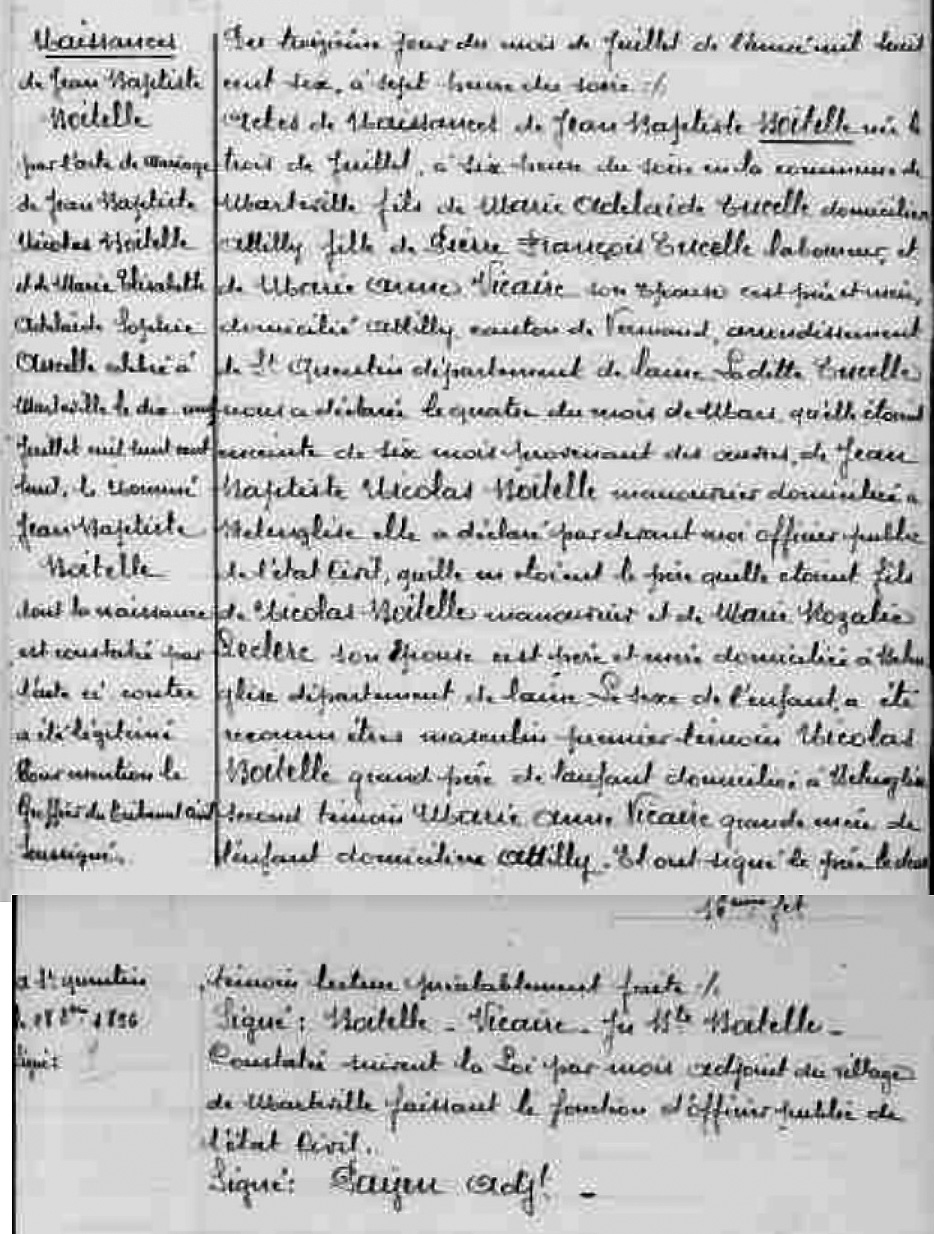 Naissances
de Jean Baptiste
Boitelle
par l'acte de mariage
de Jean Baptiste
Nicolas Boitelle
et de Marie Elisabeth
Adelaide Sophie
Ancelle célébré à
Marteville le dix neuf
Juillet mil huit cent
huit, le nommé
Jean Baptiste
Boitelle
dont la naissance
est constatée par
l'acte ci contre
a été légitimé
Pour mention le
Greffier du tribunal civil
soussigné.
a St quentin
le 1826
Signé:
Du treizième jour du mois de Juillet de l'année mil huit
cent six, à sept heure du soire ./.
Actes de Naissances de Jean Baptiste Boitelle née le
trois de Juillet, à six heure du soire en la commune de
Marteville fils de Marie Adelaide Encelle domicilier
Attilly fille de Pierre François Encelle laboureur, et
de Marie Anne Vicaire son Epouse cest père et mère,
domicilié Attilly, canton de Vermand, arrondissement
de St Quentin département de laisne Ladette Encelle
nous a déclarée le quatre du mois de Mars, qu'elle étoint
enceinte de six mois provenant des œuvres, de Jean
Baptiste Nicolas Boitelle manouvrier domiciliée a
elle a déclaré par devant moi officier public
de l'état Civil, quille en étoient le père quelle étoint fils
de Nicolas Boitelle manouvrier et de Marie Rozalie
Leclerc son Epouse cest père et mère domiciliée à
glise département de laisne Le sexe de l'enfant, a été
reconnu êtres masculin premier témoin Nicolas
Boitelle grand père de l'enfant domiciliée à
second témoin Marie Anne Vicaire grande mère de
l'enfant domicilière Attilly. Et ont signé le père les deux
16eme fet
témoin lecture préalablement faite ./.
Signé: Boitelle - Vicaire - Jn Bte Boitelle -
Constatée suivent la Loi par mois adjoint du village
de Marteville faissant le fonction d'officier public de
l'état Civil.
Signé: Adjt -